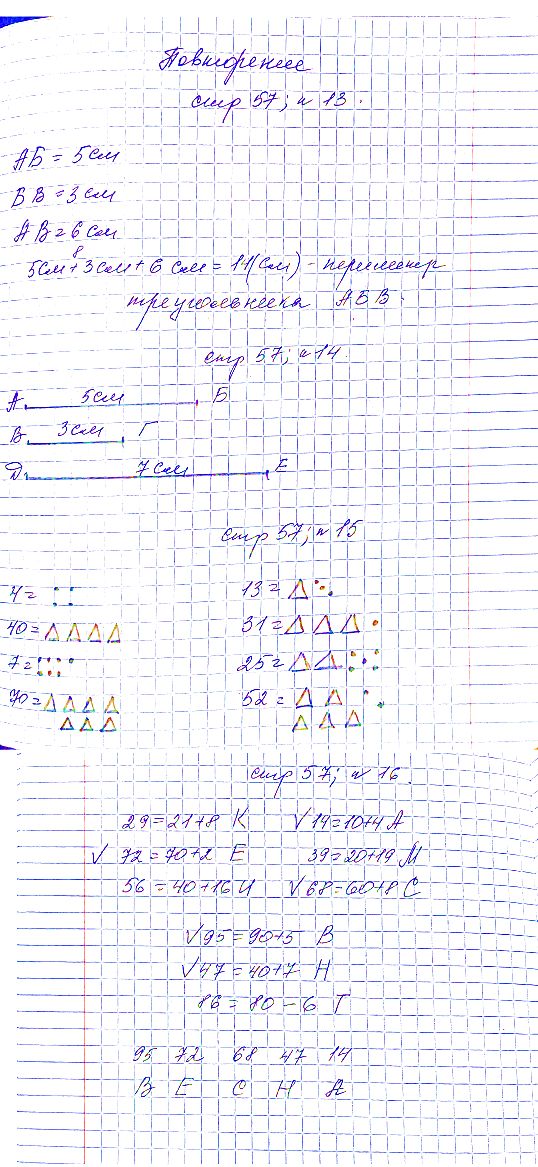 Повторение
стр 57; н 13.
АБ = 5см
БВ = 3см
АВ = 6см
8
5см + 3см + 6 см = 11(см) - периметр
треугольника АБВ.
стр 57; н 14
А 5см Б
В 3см Г
Д 7см Е
стр 57; н 15
4 = 13 =
40 = 31 =
7 = 25 =
70 = 52 =
стр 57; н 16.
29 = 21 + 8 К √ 14 = 10 + 4 А
√ 72 = 70 + 2 Е 39 = 20 + 19 М
56 = 40 + 16 И √ 68 = 60 + 8 С
√ 95 = 90 + 5 В
√ 47 = 40 + 7 Н
86 = 80 - 6 Т
95 72 68 47 14
В Е С Н А